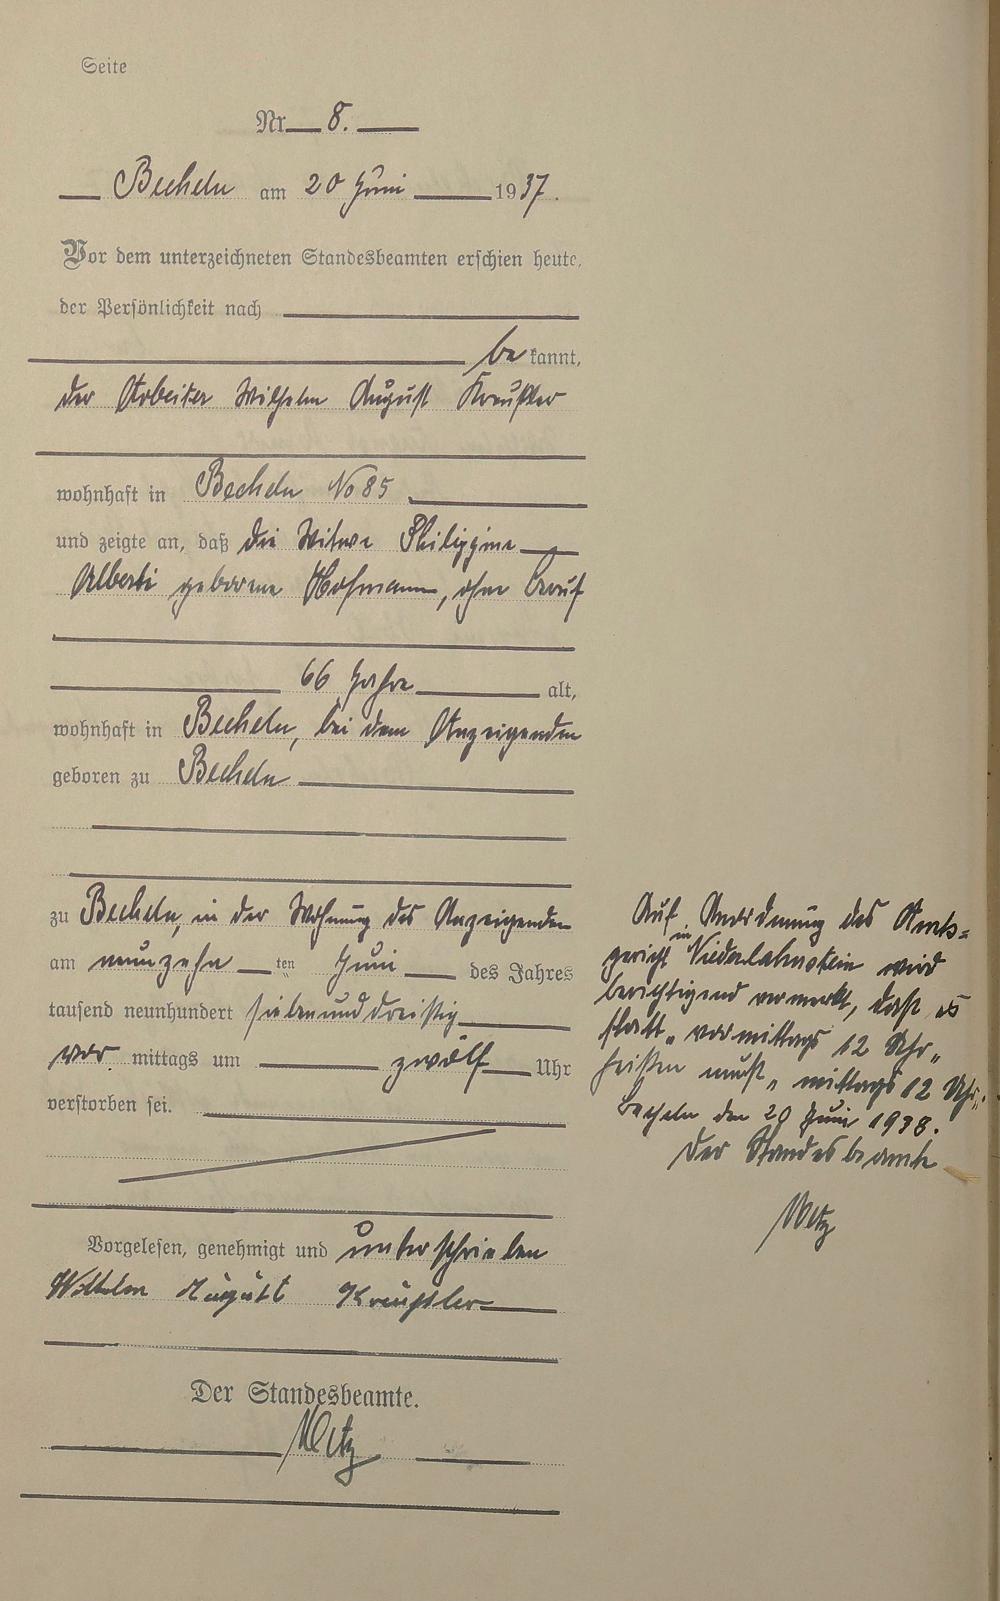 Seite
Nr 8.
Becheln am 20 Juni 1937.
Vor dem unterzeichneten Standesbeamten erschien heute,
der Persönlichkeit nach
be kannt,
der Arbeiter Wilhelm August Kreußler
wohnhaft in Becheln No 85
und zeigte an, daß die Witwe Philippine
Alberti geborene Hofmann, ohne Beruf
66 Jahre alt,
wohnhaft in Becheln, bei dem Anzeigenden
geboren zu Becheln
zu Becheln, in der Wohnung des Anzeigenden
am neunzehn ten Juni des Jahres
tausend neunhundert siebenunddreißig
vor mittags um zwölf Uhr
verstorben sei.
Vorgelesen, genehmigt und unterschrieben
Wilhelm August Kreußler
Der Standesbeamte.
Metz
Auf Anordnung des Amts=
gericht in Niederlahnstein wird
berichtigend vermerkt, daß es
statt „vormittags 12 Uhr„
heißen muß„ mittags 12 Uhr„.
Becheln den 20 Juni 1938.
Der Standesbeamte
Metz